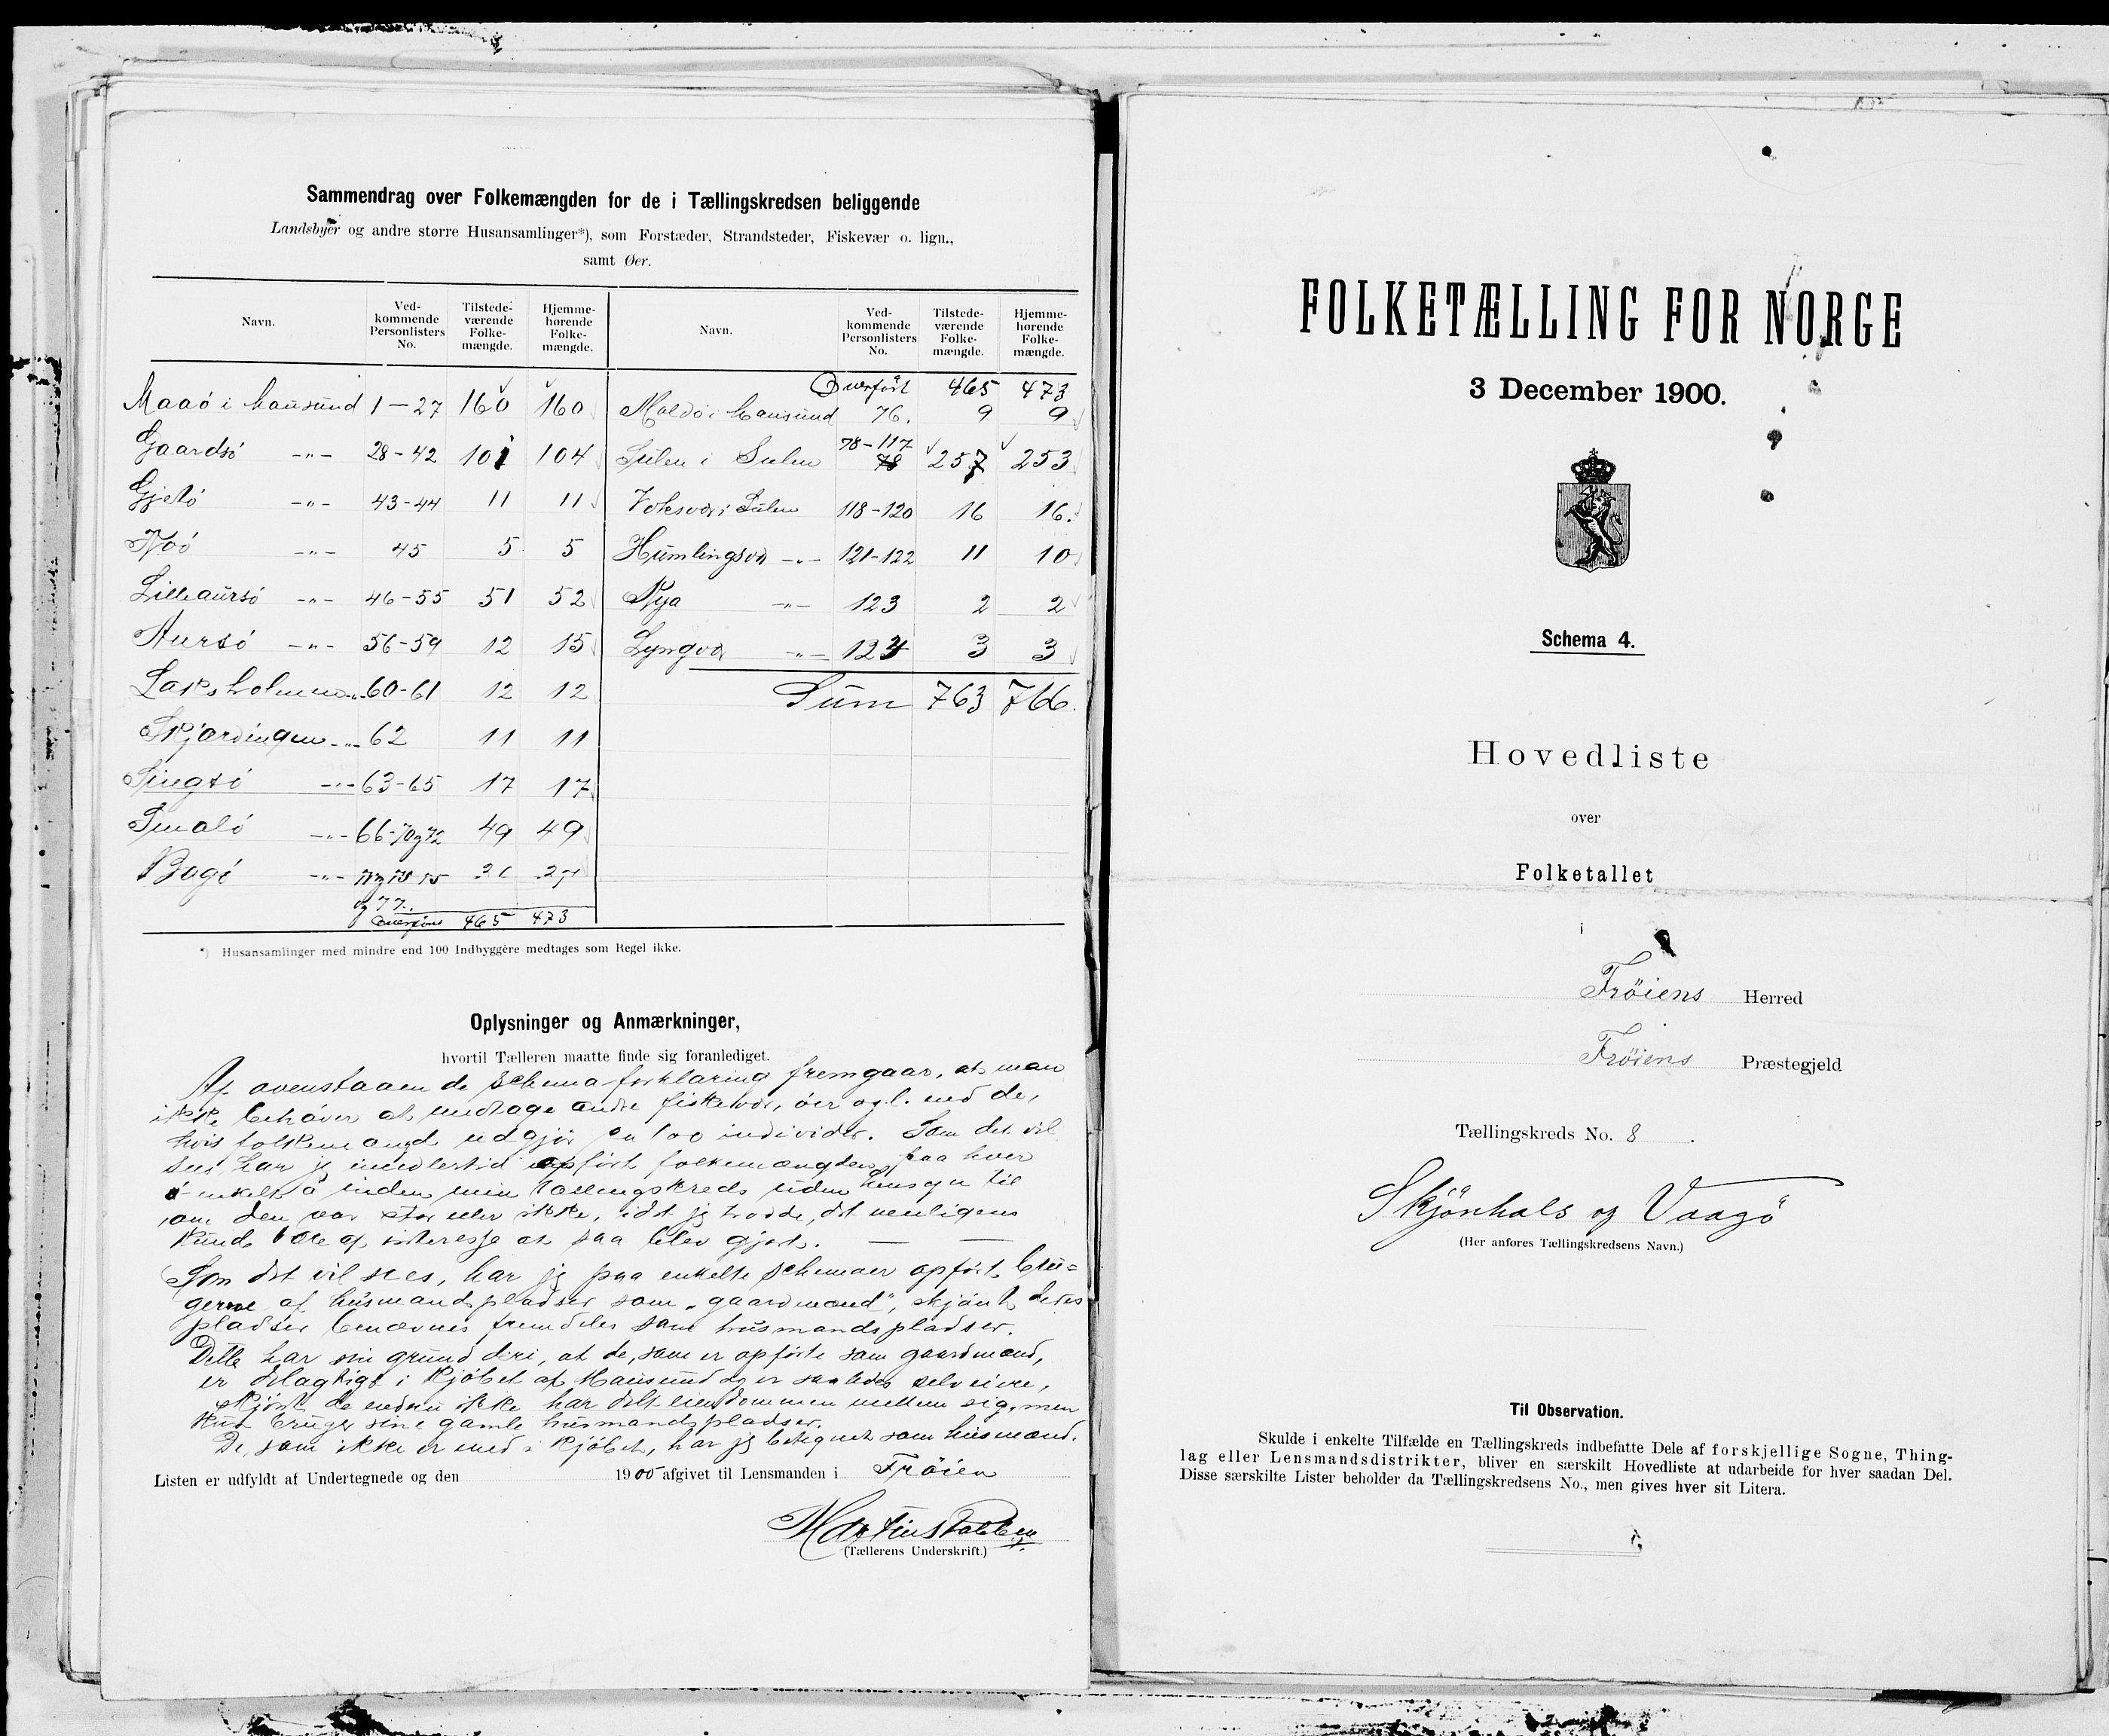 Sammendrag over Folkemængden for de i Tællingskredsen beliggende
Landsbyer og andre større Husansamlinger*), som Forstæder, Strandsteder, Fiskevær o. lign.,
samt Øer.
Navn. Ved-kommende Personlisters No. Tilstede-værende Folke-mængde. Hjemme-hørende Folke-mængde.
Maaö i Mausund 1-27 160 160
Gaardsö -"- 28-42 101 104
Gjetö -"- 43-44 11 11
-"- 45 5 5
Lilleaursö -"- 46-55 51 52
Aursö -"- 56-59 12 15
Laksholmen -"- 60-61 12 12
Skjærdingen -"- 62 11 11
-"- 63-65 17 17
-"- 66-70 og 72 49 49
Bogö -"- 75
og 77.
Overføres 465 473
Navn. Ved-kommende Personlisters No. Tilstede-værende Folke-mængde. Hjemme-hørende Folke-mængde.
Overført 465 473
i Mausund 76. 9 9
Sulen i Sulen 78-117 257 253
i Sulen 118-120 16 16.
Humlingsvær -"- 121-122 11 10
-"- 123 2 2
Lyngvær -"- 124 3 3
Sum 763 766.
*) Husansamlinger med mindre end 100 Indbyggere medtages som Regel ikke.
Oplysninger og Anmærkninger,
hvortil Tælleren maatte finde sig foranlediget.
Af ovenstaaende schemaforklaring fremgaar, at man
ikke behöver at medtage andre fiskevær, öer o.g.l. end de,
hvis folkemængde udgjör ca 100 individer. Som det vil
sees har jeg imidlertid opfört folkemængden paa hver
enkelt ö inden min tællingskreds uden hensyn til
om den var stor eller ikke, idet jeg trodde, det muligens
kunde være af interesse at saa blev gjort.
Som det vil sees, har jeg paa enkelte schemaer opfört bru-
gerne af husmandspladser som "gaardmænd", skjönt deres
pladser benævnes fremdeles som husmandspladser.
Dette har sin grund deri, at de, som er opförte som gaardmænd,
er delagtige i kjöbet af Mausund og er saaledes selveiere,
skjönt de endnu ikke har delt eiendommen mellem sig, men
kun bruger sine gamle husmandspladser.
De, som ikke er med i kjöbet, har jeg betegnet som husmænd.
Listen er udfyldt af Undertegnede og den 1900 afgivet til Lensmanden i Fröien
(Tællerens Underskrift.)
FOLKETÆLLING FOR NORGE
3 December 1900.
Schema 4.
Hovedliste
over
Folketallet
i
Fröiens Herred
Fröiens Præstegjeld
Tællingskreds No. 8.
Skjönhals og Vaagö
(Her anføres Tællingskredsens Navn.)
Til Observation.
Skulde i enkelte Tilfælde en Tællingskreds indbefatte Dele af forskjellige Sogne, Thing-
lag eller Lensmandsdistrikter, bliver en særskilt Hovedliste at udarbeide for hver saadan Del.
Disse særskilte Lister beholder da Tællingskredsens No., men gives hver sit Litera.